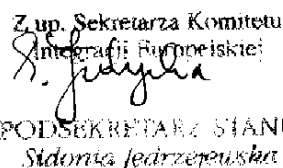 Z up. Sekretarza Komitetu
Integracji Europejskiej
PODSEKRETARZ STAN
Sidonia Jędrzejewska